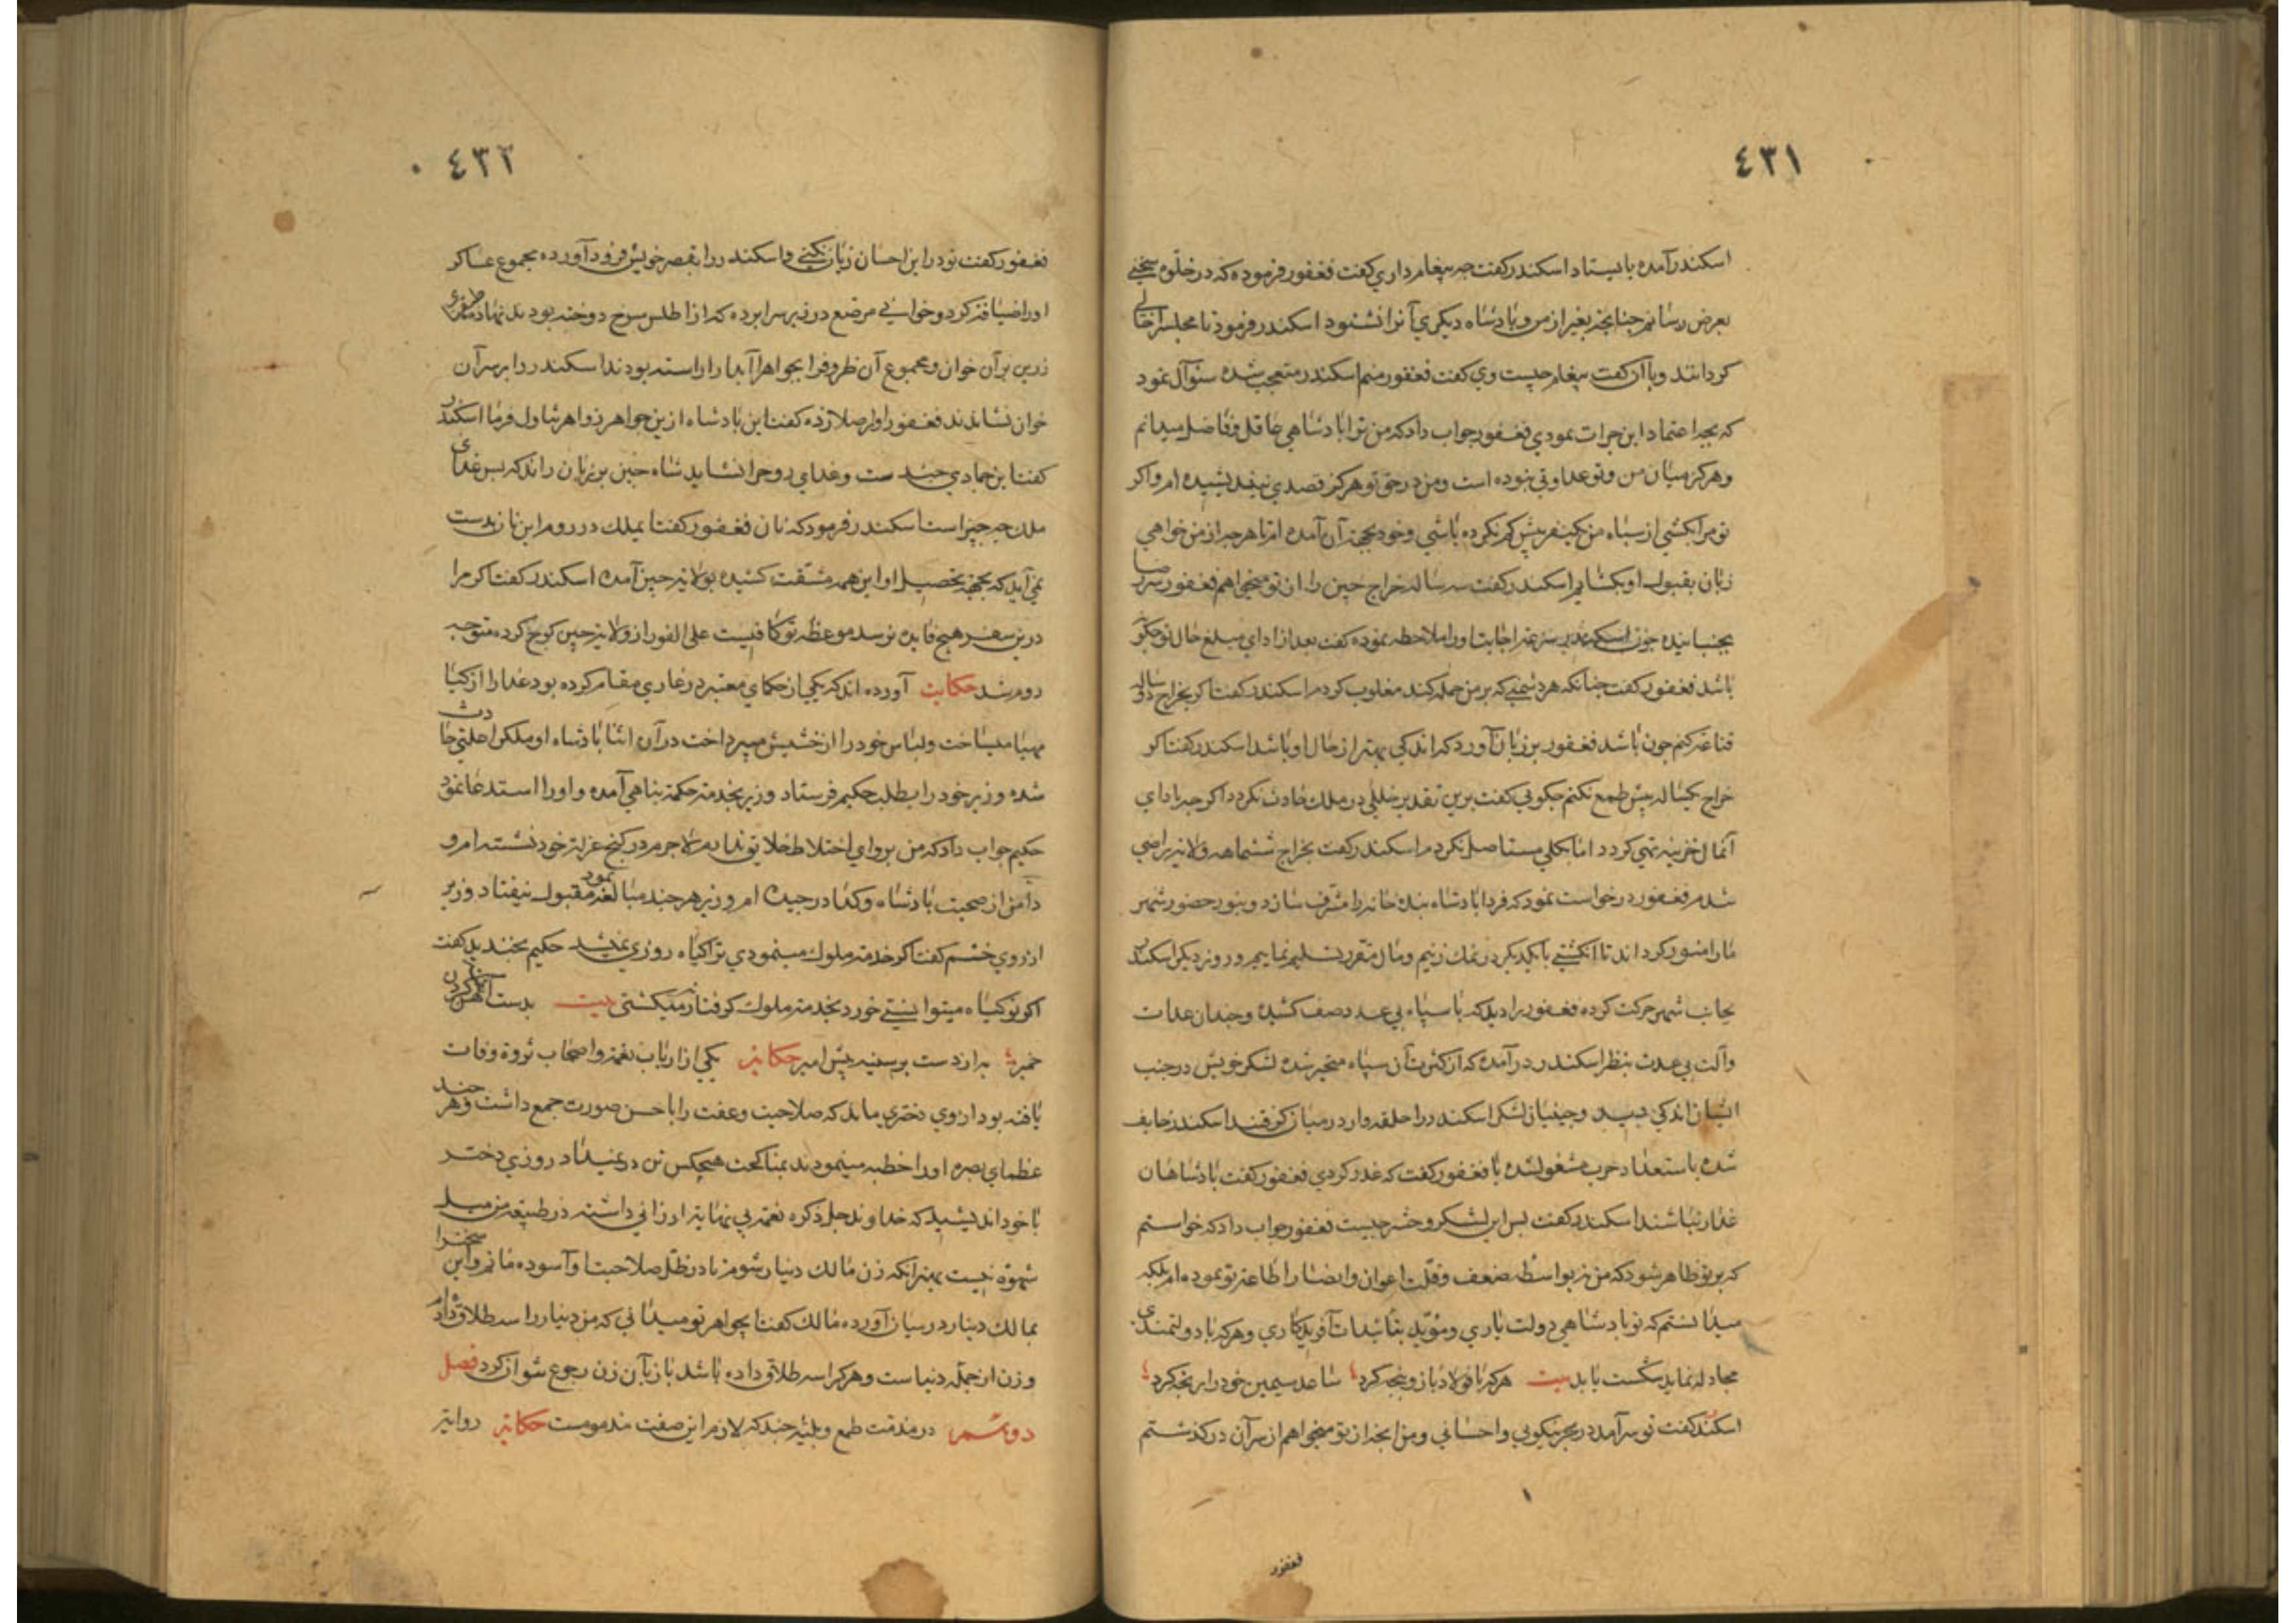 ٤٣١
اسکندر آمده بایستاد اسکندر کفت چه پیغام داری کفت فغفور فرموده که در خلوة سخنی
بعرض رسانم چنانچه بغیر از من و پادشاه دیکری آنرا نشنود اسکندر فرمود تا مجلس را خالی
کردانند وبا او کفت پیغام چیست وی کفت فغفور منم اسکندر متعجب شده سئوآل نمود
که بچه اعتماد این جرات نمودی فغفور جواب داد که من ترا پادشاهی عاقل وفاضل میدانم
وهرکز میان من وتو عداوتی نبوده است ومن در حق تو هرکز قصدی نیندیشیده ام واکر
تو مرا بکشی از سپاه من یکنفر پیش کم نکرده باشی وخود بجهة آن آمده ام تا هرچه از من خواهی
زبان بقبول او بکشایم اسکندر کفت سه ساله خراج چین را از تو میخواهم فغفور سر رضا
بجنبانیده چون اسکندر سرعة اجابت اورا ملاحظه نموده کفت بعد از ادای مبلغ حال تو چکونه
باشد فغفور کفت چنانکه هر دشمنی که بر من حمله کند مغلوب کردم اسکندر کفت اکر بخراج دو ساله
قناعة کنم چون باشد فغفور بر زبان آورد که اندکی بهتر از حال او باشد اسکندر کفت اکر
خراج یکساله بیش طمع نکنم چکونی کفت برین تقدیر خللی در ملک حادث نکردد اکرچه از ادای
آنمال خزینه تهی کردد اما بکلی مستاصل نکردم اسکندر کفت بخراج ششماهه ولایة راضی
شدم فغفور درخواست نمود که فردا پادشاه بنده خانه را مشرف سازد وبنور حضور شهر
مارا منور کرداند تا انکشتی با یکدیکر در نمک زنیم ومال مقرر تسلیم نماییم و روز دیکر اسکندر
بجانب شهر حرکت کرده فغفور را دید که با سپاه بی عدد صف کشیده وچندان عدات
وآلت بی عدت بنظر اسکندر در آمده که از کثرت آن سپاه متحیر شده لشکر خویش در جنب
ایشان اندکی دید وچینیان لشکر اسکندر را حلقه وار در میان کرفتند اسکندر خایف
شده باستعداد حرب مشغول شده با فغفور کفت که غدر کردی فغفور کفت پادشاهان
غدار نباشند اسکندر کفت پس این لشکر وحشر چیست فغفور جواب داد که خواستم
که بر تو ظاهر شود که من نه بواسطه ضعف وقلت اعوان وانصار اطاعة تو نموده ام بلکه
میدانستم که تو پادشاهی دولت یاری ومؤید بتائیدات آفریدکاری وهر که با دولتمندی
مجادله نماید شکست یابد بیت هر که با فولاد بازو پنجه کرد ساعد سیمین خود را رنجه کرد
اسکندر کفت تو سر آمد در بحر نیکویی واحسانی ومن آنچه از تو میخواهم از سر آن در کذشتم
فغفور
٤٣٢
فغفور کفت تو در این احسان زیان نکنی واسکندر را بقصر خویش فرود آورده مجموع عساکر
اورا ضیافة کرد وخوانی مرصع در زیر سرا پرده که از اطلس سرخ دوخته بود بنهاد
زرین بر آن خوان ومجموع آن ظروفرا بجواهر آبدار اراسته بودند اسکندر را بر سر آن
خوان نشاندند فغفور اورا صلا زده کفت این پادشاه ازین جواهر زواهر تناول فرما اسکندر
کفت این جمادی چند ست وغدای روح را نشاید شاه چین بر زبان راند که پس غدای
ملک چه چیز است اسکندر فرمود که نان فغفور کفت ایملک در روم این نان بدست
نمی آید که بجهة تحصیل او این همه مشقت کشیده بولایة چین آمده اسکندر کفت اکر مرا
درین سفر هیچ فایده نرسد موعظه تو کافیست علی الفور از ولایة چین کوچ کرده متوجه
روم شد حکایت آورده اند که یکی از حکمای معتبر در غاری مقام کرده بود غدا را از کیا
مهیا میساخت ولباس خود را از حشیش میپرداخت در آن اثنا پادشاه او ملک را علتی حادث
شده وزیر خود را بطلب حکیم فرستاد وزیر بخدمة حکمة پناهی آمده واورا استدعا نمود
حکیم جواب داد که من پروای اختلاط خلایق ندارم لاجرم در کنج عزلة خود نشسته ام و
دامن از صحبت پادشاه وکدا در چیده ام وزیر هر چند مبالغه نمود مقبول نیفتاد وزیر
از روی خشم کفت اکر خدمة ملوک مینمودی ترا کیاه روزی نمیشد حکیم بخندید کفت
اکر تو کیاه میتوانستی خورد بخدمة ملوک کرفتار نمیکشتی بیت بدست آهن کردن
خمیر به از دست بر سینه پیش امیر حکایة یکی از ارباب نعمة واصحاب ثروة وفات
یافته بود از وی دختری ماند که صلاحیت وعفت را با حسن صورت جمع داشت وهر چند
عظمای بصره اورا خطبه مینمودند بمناکحت هیچکس تن در نمیداد روزی دختر
با خود اندیشید که خداوند جل ذکره نعمة بی نهایة ارزانی داشته در طبیعة من میل
شهوة نیست بهتر آنکه زن مالک دینار شوم تا در ظل صلاحیت او آسوده مانم واین سخن را
بمالک دینار در میان آورده مالک کفت ایجواهر تو میدانی که من دنیار را سه طلاق داده ام
وزن از جمله دنیا ست وهر کرا سه طلاق داده باشد باز بآن زن رجوع نتوان کرد فصل
دوشم در مذمت طمع وبلیه چند که لازم این صفت مذمومست حکایة روایة